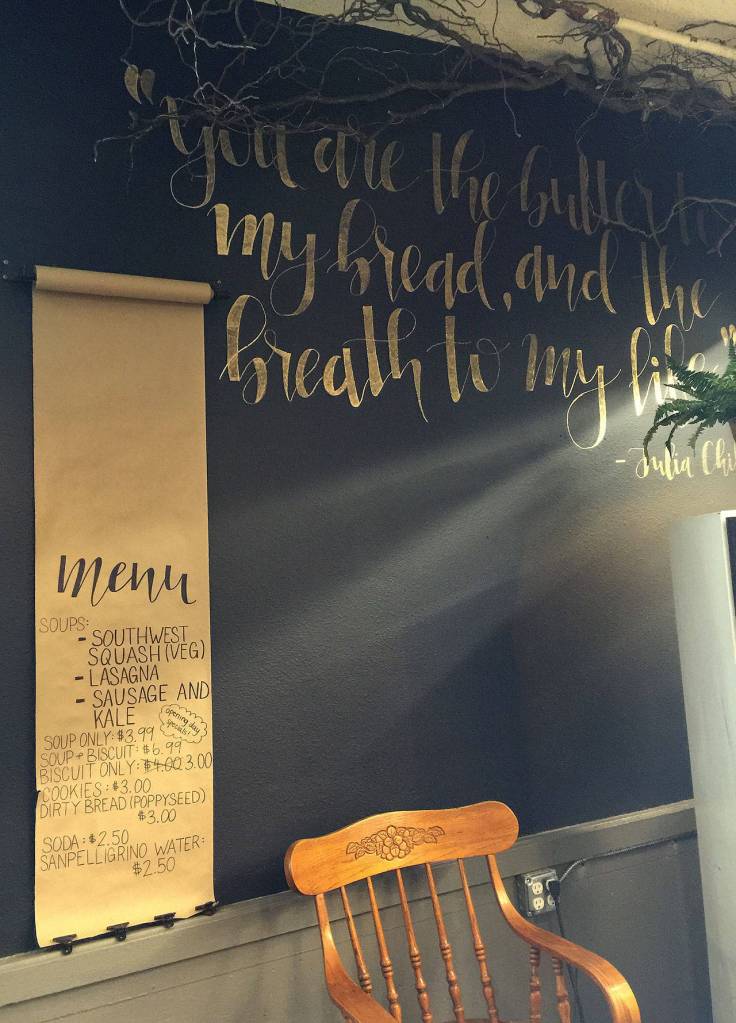 "You are the butter to
my bread, and the
breath to my life"
- Julia Chil
Menu
SOUPS:
- SOUTHWEST
SQUASH (VEG)
- LASAGNA
- SAUSAGE AND
KALE
opening day
specials!
SOUP ONLY: $3.99
SOUP + BISCUIT: $6.99
BISCUIT ONLY: $4.00 3.00
COOKIES: $3.00
DIRTY BREAD (POPPYSEED)
$3.00
SODA: $2.50
SANPELLIGRINO WATER:
$2.50